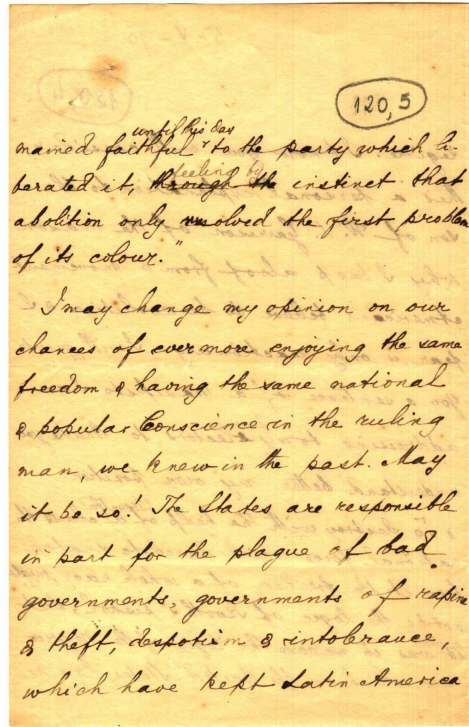 120,5
until this day
mained faithful to the party which li-
feeling by
berated it, through the instinct that
abolition only resolved the first problem
of its colour."
I may change my opinion on our
chances of evermore enjoying the same
freedom & having the same national
& popular Conscience in the ruling
man, we knew in the past. May
it be so! The States are responsible
in part for the plague of bad
governments, governments of rapine
& theft, despotism & intolerance,
which have kept Latin America